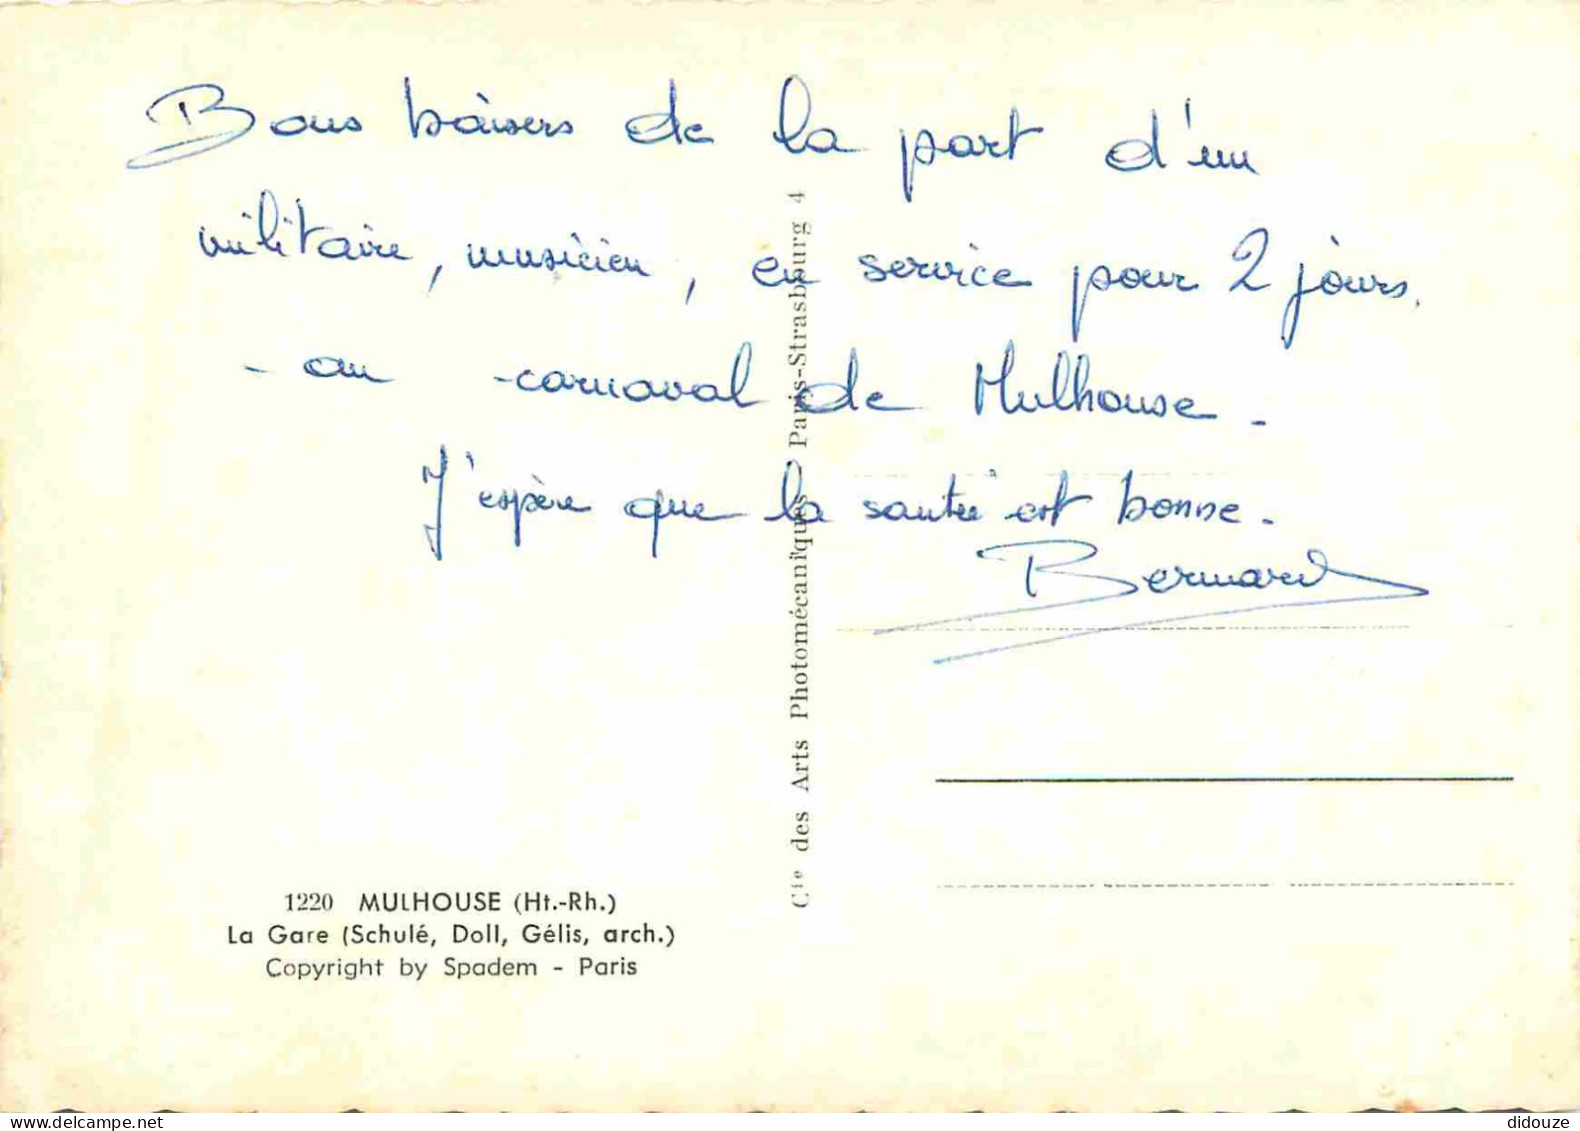 Bons baisers de la part d'un
militaire, musicien, en service pour 2 jours.
- au carnaval de Mulhouse -
J'espère que la santé est bonne.
Bernard
Cie des Arts Photomécaniques Paris-Strasbourg 4
1220 MULHOUSE (Ht.-Rh.)
La Gare (Schulé, Doll, Gélis, arch.)
Copyright by Spadem - Paris
didouze